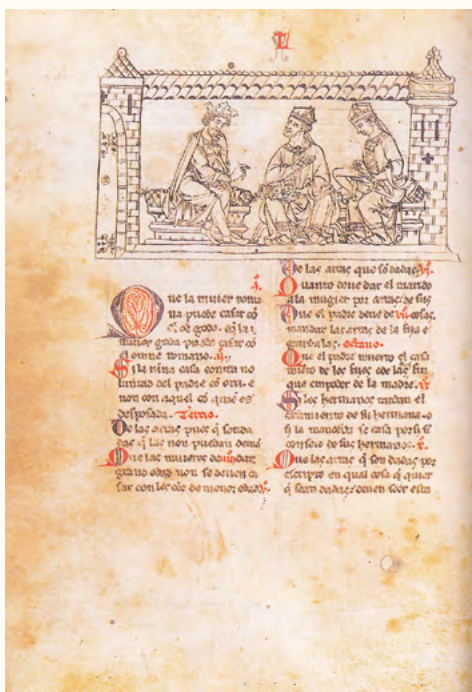 Que la muier roma
na puede casar cõ
el õe godo. e la
muier goda puede casar cõ
el omne romano. ii.
Si la nina casa contra uo
luntad del padre cõ otri. e
non con aquel cõ que es
desposada. Tercio.
De las arras pues que son da
das q̃ las non puedan dema
Que las muieres de dar.
grand edad non se deuen ca
sar con los de menor edad.
De las arras que sõ dadas.
Quanto deue dar el marido
a la mugier por arras. de sus
Que el padre deue de cosas.
mandar las arras de la fija e
gardalas. octauo.
Que el padre muerto el casa
miento de los fijos e de las fijas
que en poder de la madre.
Si los hermanos tardan el
casamiento de su hermana. o
si la manceba se casa por si sĩ
conseio de sus hermanos.
Que las arras q̃ son dadas por
escripto en qual cosa q̃ quier
q̃ sean dadas. deuen seer esta